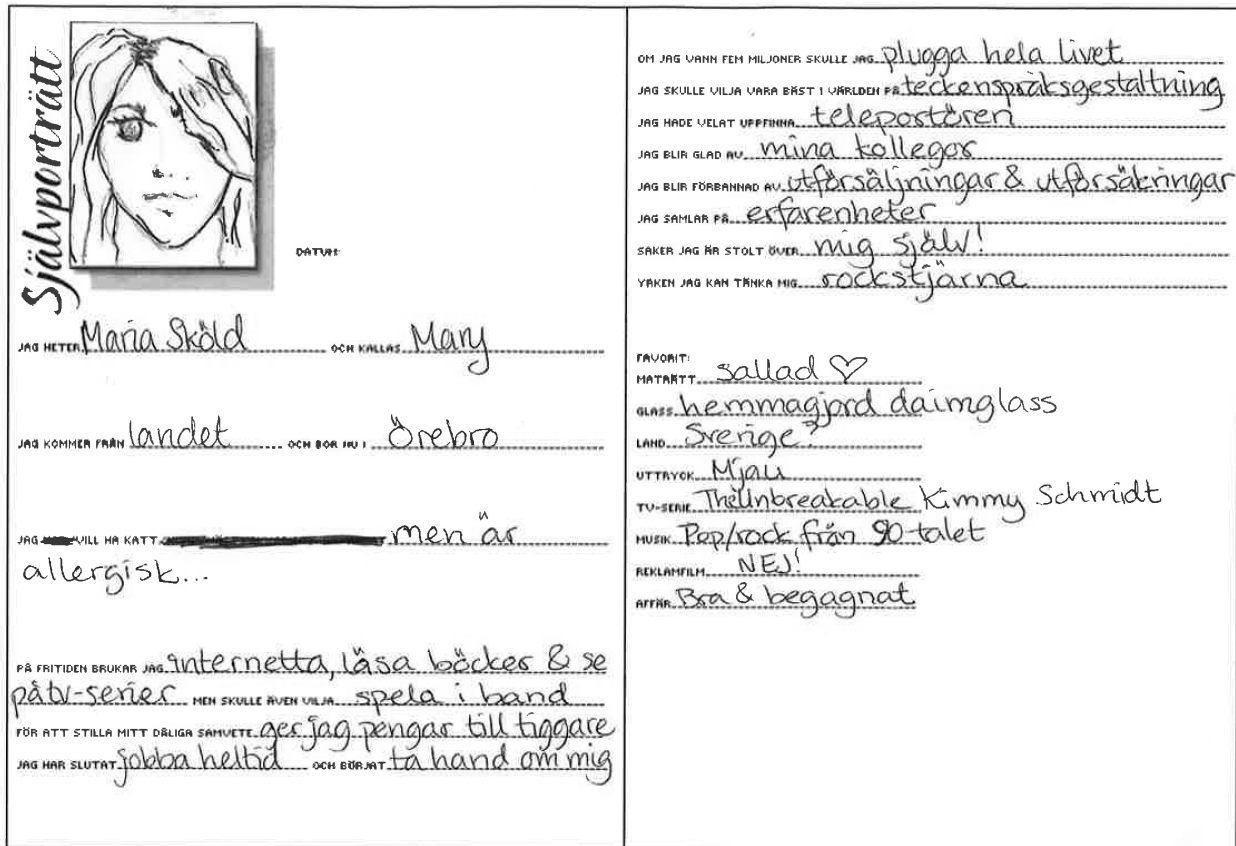 Självporträtt
DATUM:
JAG HETER Maria Sköld OCH KALLAS Mary
JAG KOMMER FRÅN landet OCH BOR NU I Örebro
JAG VILL HA KATT men är
allergisk...
PÅ FRITIDEN BRUKAR JAG internetta, läsa böcker & se
på tv-serier MEN SKULLE ÄVEN VILJA spela i band
FÖR ATT STILLA MITT DÅLIGA SAMVETE ger jag pengar till tiggare
JAG HAR SLUTAT jobba heltid OCH BÖRJAT ta hand om mig
OM JAG VANN FEM MILJONER SKULLE JAG plugga hela livet
JAG SKULLE VILJA VARA BÄST I VÄRLDEN PÅ teckenspråksgestaltning
JAG HADE VELAT UPPFINNA teleportören
JAG BLIR GLAD AV mina kollegor
JAG BLIR FÖRBANNAD AV utförsäljningar & utförsäkringar
JAG SAMLAR PÅ erfarenheter
SAKER JAG ÄR STOLT ÖVER mig själv!
YRKEN JAG KAN TÄNKA MIG rockstjärna
FAVORIT:
MATRÄTT sallad ♡
GLASS hemmagjord daimglass
LAND Sverige?
UTTRYCK Mjau
TV-SERIE The Unbreakable Kimmy Schmidt
MUSIK Pop/rock från 90-talet
REKLAMFILM NEJ!
AFFÄR Bra & begagnat